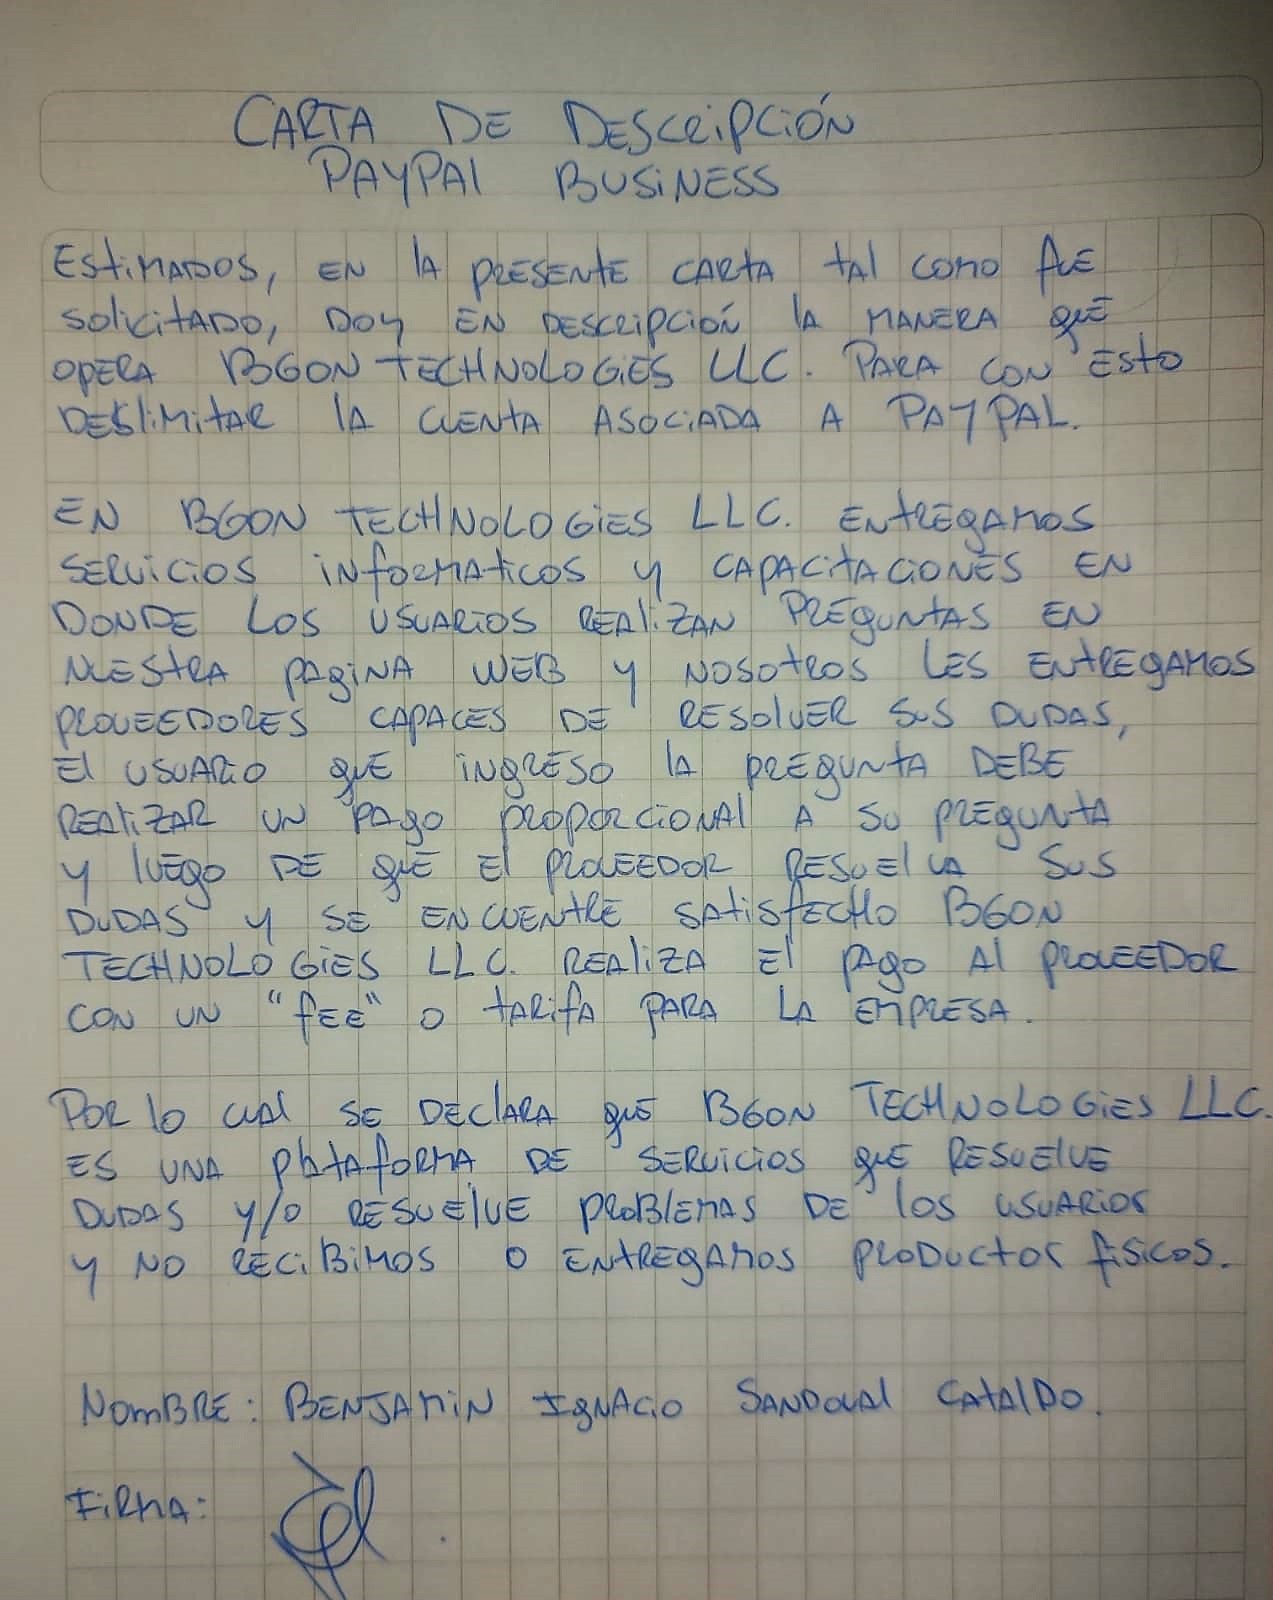 CARTA DE DESCRIPCIÓN
PAYPAL BUSINESS
ESTIMADOS, EN LA PRESENTE CARTA TAL COMO FUE
SOLICITADO, DOY EN DESCRIPCIÓN LA MANERA QUE
OPERA BGON TECHNOLOGIES LLC. PARA CON ESTO
DESLIMITAR LA CUENTA ASOCIADA A PAYPAL.
EN BGON TECHNOLOGIES LLC. ENTREGAMOS
SERVICIOS INFORMATICOS Y CAPACITACIONES EN
DONDE LOS USUARIOS REALIZAN PREGUNTAS EN
NUESTRA PAGINA WEB Y NOSOTROS LES ENTREGAMOS
PROVEEDORES CAPACES DE RESOLVER SUS DUDAS,
EL USUARIO QUE INGRESO LA PREGUNTA DEBE
REALIZAR UN PAGO PROPORCIONAL A SU PREGUNTA
Y LUEGO DE QUE EL PROVEEDOR RESUELVA SUS
DUDAS Y SE ENCUENTRE SATISFECHO BGON
TECHNOLOGIES LLC. REALIZA EL PAGO AL PROVEEDOR
CON UN "FEE" O TARIFA PARA LA EMPRESA.
POR LO CUAL SE DECLARA QUE BGON TECHNOLOGIES LLC.
ES UNA PLATAFORMA DE SERVICIOS QUE RESUELVE
DUDAS Y/O RESUELVE PROBLEMAS DE LOS USUARIOS
Y NO RECIBIMOS O ENTREGAMOS PRODUCTOS FISICOS.
NOMBRE: BENJAMIN IGNACIO SANDOVAL CATALDO.
FIRMA: